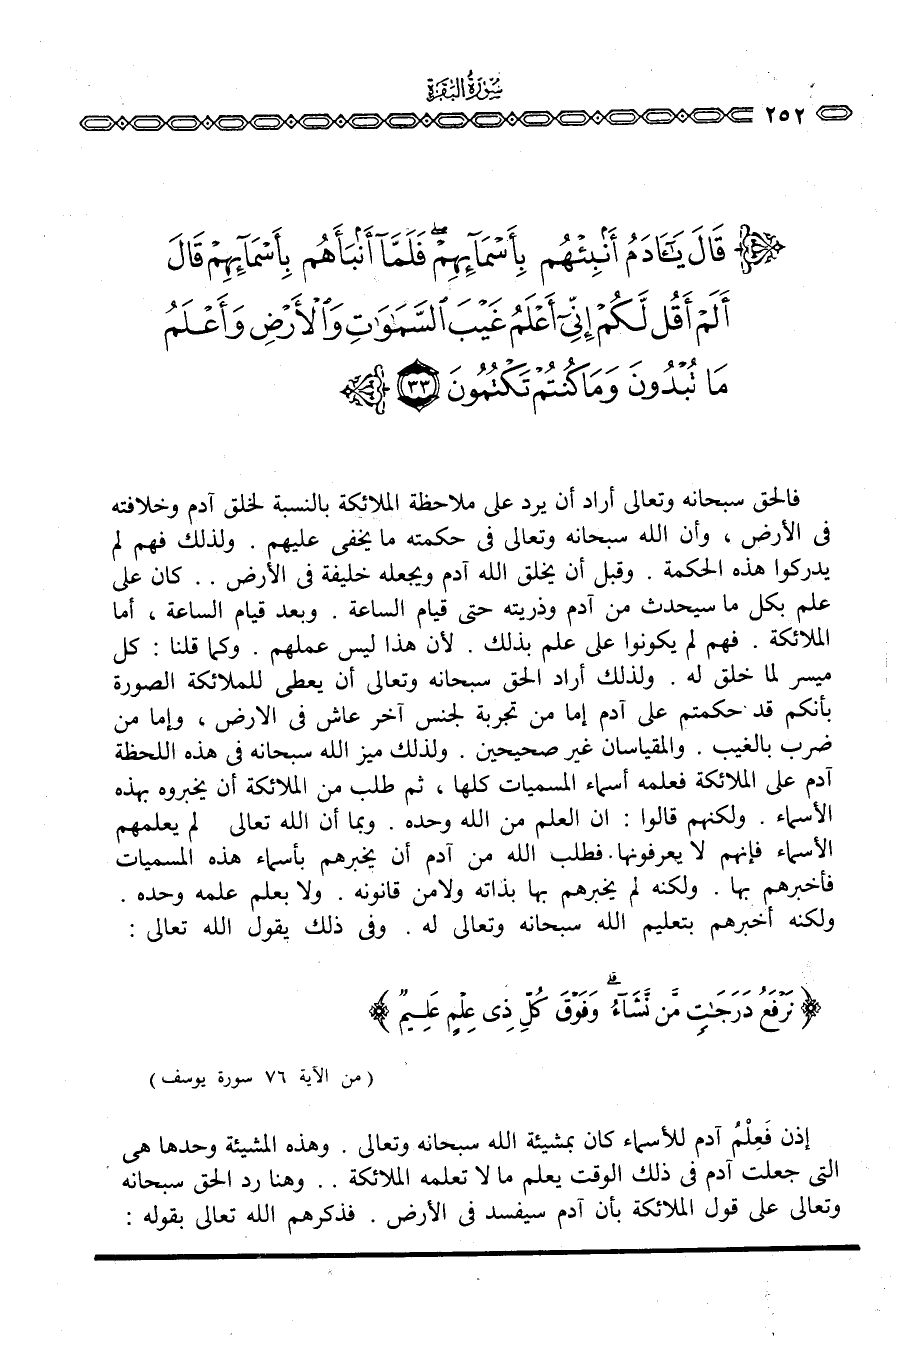 سورة البقرة
٢٥٢
قَالَ يَٰٓـَٔادَمُ أَنۢبِئْهُم بِأَسْمَآئِهِمْ ۖ فَلَمَّآ أَنۢبَأَهُم بِأَسْمَآئِهِمْ قَالَ
أَلَمْ أَقُل لَّكُمْ إِنِّىٓ أَعْلَمُ غَيْبَ ٱلسَّمَٰوَٰتِ وَٱلْأَرْضِ وَأَعْلَمُ
مَا تُبْدُونَ وَمَا كُنتُمْ تَكْتُمُونَ ٣٣
فالحق سبحانه وتعالى أراد أن يرد على ملاحظة الملائكة بالنسبة لخلق آدم وخلافته
فى الأرض ، وأن الله سبحانه وتعالى فى حكمته ما يخفى عليهم . ولذلك فهم لم
يدركوا هذه الحكمة . وقبل أن يخلق الله آدم ويجعله خليفة فى الأرض . . كان على
علم بكل ما سيحدث من آدم وذريته حتى قيام الساعة . وبعد قيام الساعة ، أما
الملائكة . فهم لم يكونوا على علم بذلك . لأن هذا ليس عملهم . وكما قلنا : كل
ميسر لما خلق له . ولذلك أراد الحق سبحانه وتعالى أن يعطى للملائكة الصورة
بأنكم قد حكمتم على آدم إما من تجربة لجنس آخر عاش فى الارض ، وإما من
ضرب بالغيب . والمقياسان غير صحيحين . ولذلك ميز الله سبحانه فى هذه اللحظة
آدم على الملائكة فعلمه أسماء المسميات كلها ، ثم طلب من الملائكة أن يخبروه بهذه
الأسماء . ولكنهم قالوا : ان العلم من الله وحده . وبما أن الله تعالى لم يعلمهم
الأسماء فإنهم لا يعرفونها . فطلب الله من آدم أن يخبرهم بأسماء هذه المسميات
فأخبرهم بها . ولكنه لم يخبرهم بها بذاته ولامن قانونه . ولا بعلم علمه وحده .
ولكنه أخبرهم بتعليم الله سبحانه وتعالى له . وفى ذلك يقول الله تعالى :
﴿ نَرْفَعُ دَرَجَٰتٍ مَّن نَّشَآءُ ۗ وَفَوْقَ كُلِّ ذِى عِلْمٍ عَلِيمٌ ﴾
( من الآية ٧٦ سورة يوسف )
إذن فَعِلْمُ آدم للأسماء كان بمشيئة الله سبحانه وتعالى . وهذه المشيئة وحدها هى
التى جعلت آدم فى ذلك الوقت يعلم ما لا تعلمه الملائكة . . وهنا رد الحق سبحانه
وتعالى على قول الملائكة بأن آدم سيفسد فى الأرض . فذكرهم الله تعالى بقوله :